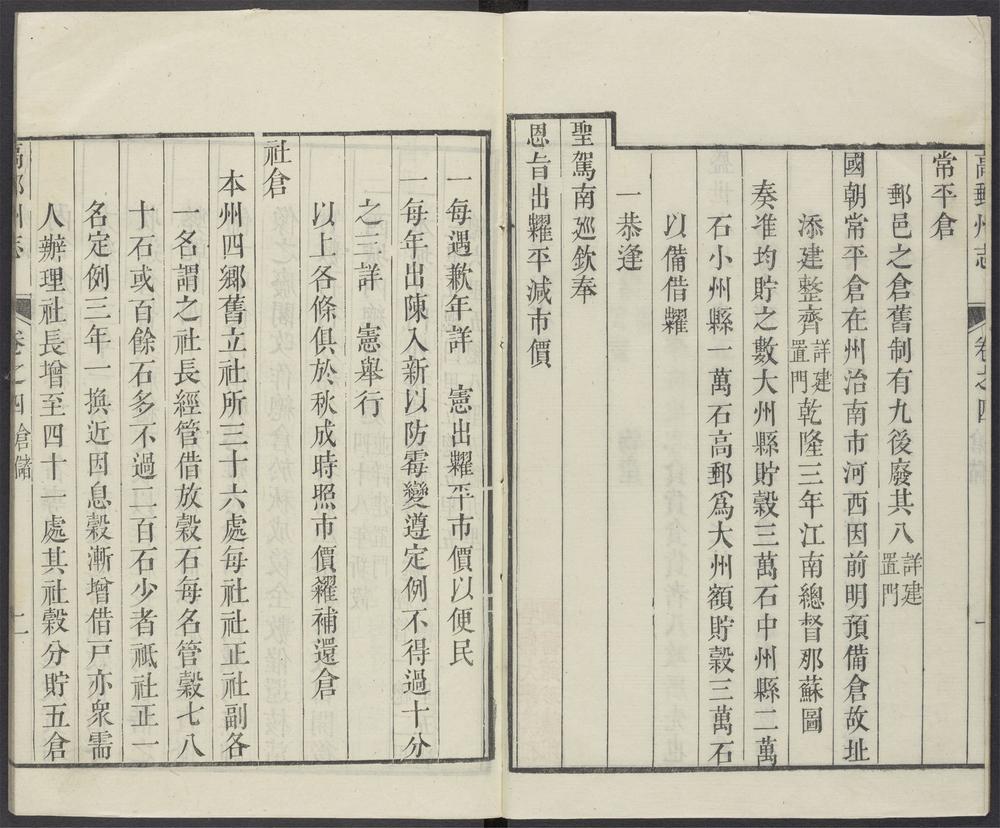 高郵州志 卷之四 倉儲 一
常平倉
郵邑之倉舊制有九後廢其八詳建置門
國朝常平倉在州治南市河西因前明預備倉故址
添建整齊詳建置門乾隆三年江南總督那蘇圖
奏准均貯之數大州縣貯穀三萬石中州縣二萬
石小州縣一萬石高郵爲大州額貯穀三萬石
以備借糶
一恭逢
聖駕南廵欽奉
恩旨出糶平減市價
一每遇歉年詳 憲出糶平市價以便民
一每年出陳入新以防霉變遵定例不得過十分
之三詳 憲舉行
以上各條俱於秋成時照市價糴補還倉
社倉
本州四鄉舊立社所三十六處每社社正社副各
一名謂之社長經管借放穀石每名管穀七八
十石或百餘石多不過二百石少者祗社正一
名定例三年一換近因息穀漸增借戸亦衆需
人辦理社長增至四十一處其社穀分貯五倉
高郵州志 卷之四 倉儲 二